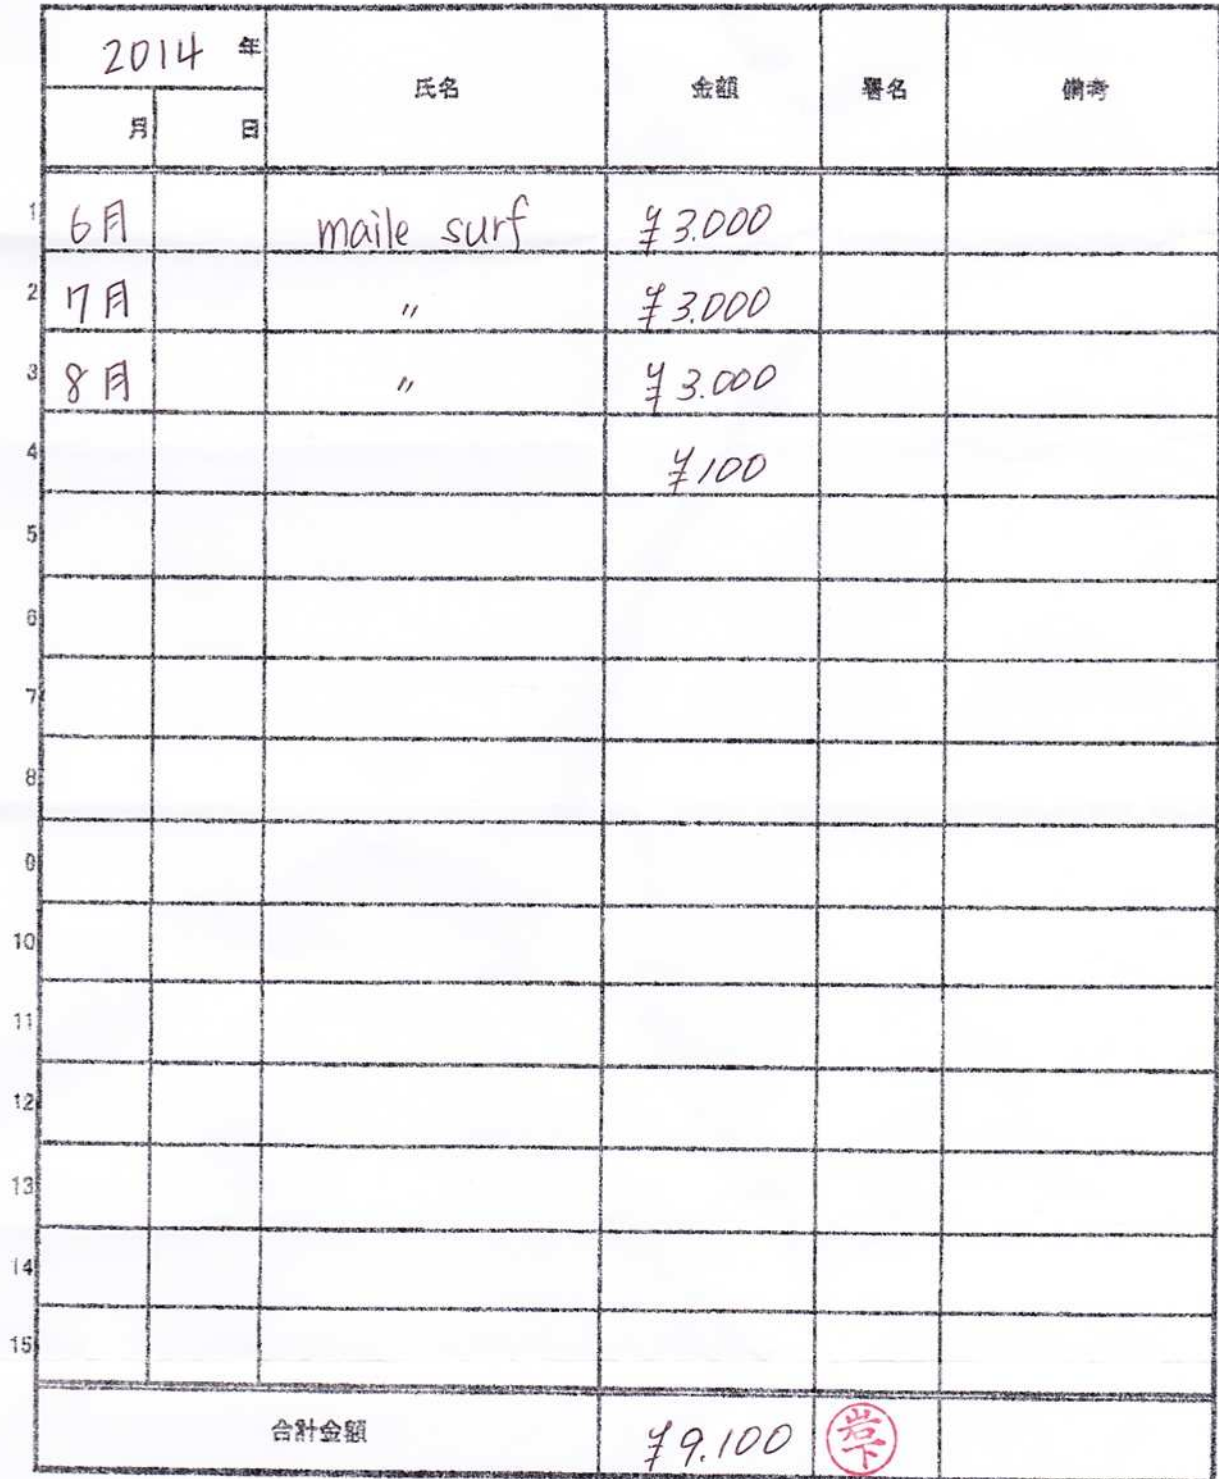 2014 年
月 日 氏名 金額 署名 備考
1 6月 maile surf ¥3.000
2 7月 〃 ¥3.000
3 8月 〃 ¥3.000
4 ¥100
5
6
7
8
9
10
11
12
13
14
15
合計金額 ¥9.100 岩下